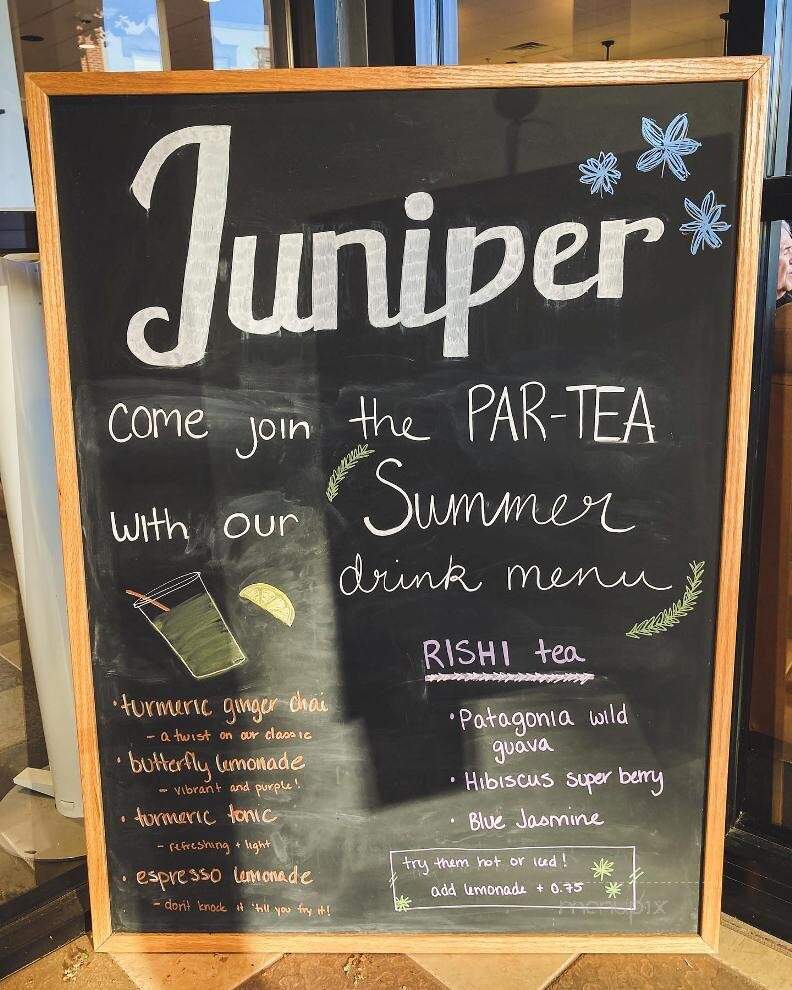 Juniper
come join the PAR-TEA
with our Summer
drink menu
RISHI tea
• turmeric ginger chai
- a twist on our classic
• butterfly lemonade
- vibrant and purple!
• turmeric tonic
- refreshing + light
• espresso lemonade
- don't knock it 'till you try it!
• Patagonia wild
guava
• Hibiscus super berry
• Blue Jasmine
try them hot or iced!
add lemonade + 0.75
menupix